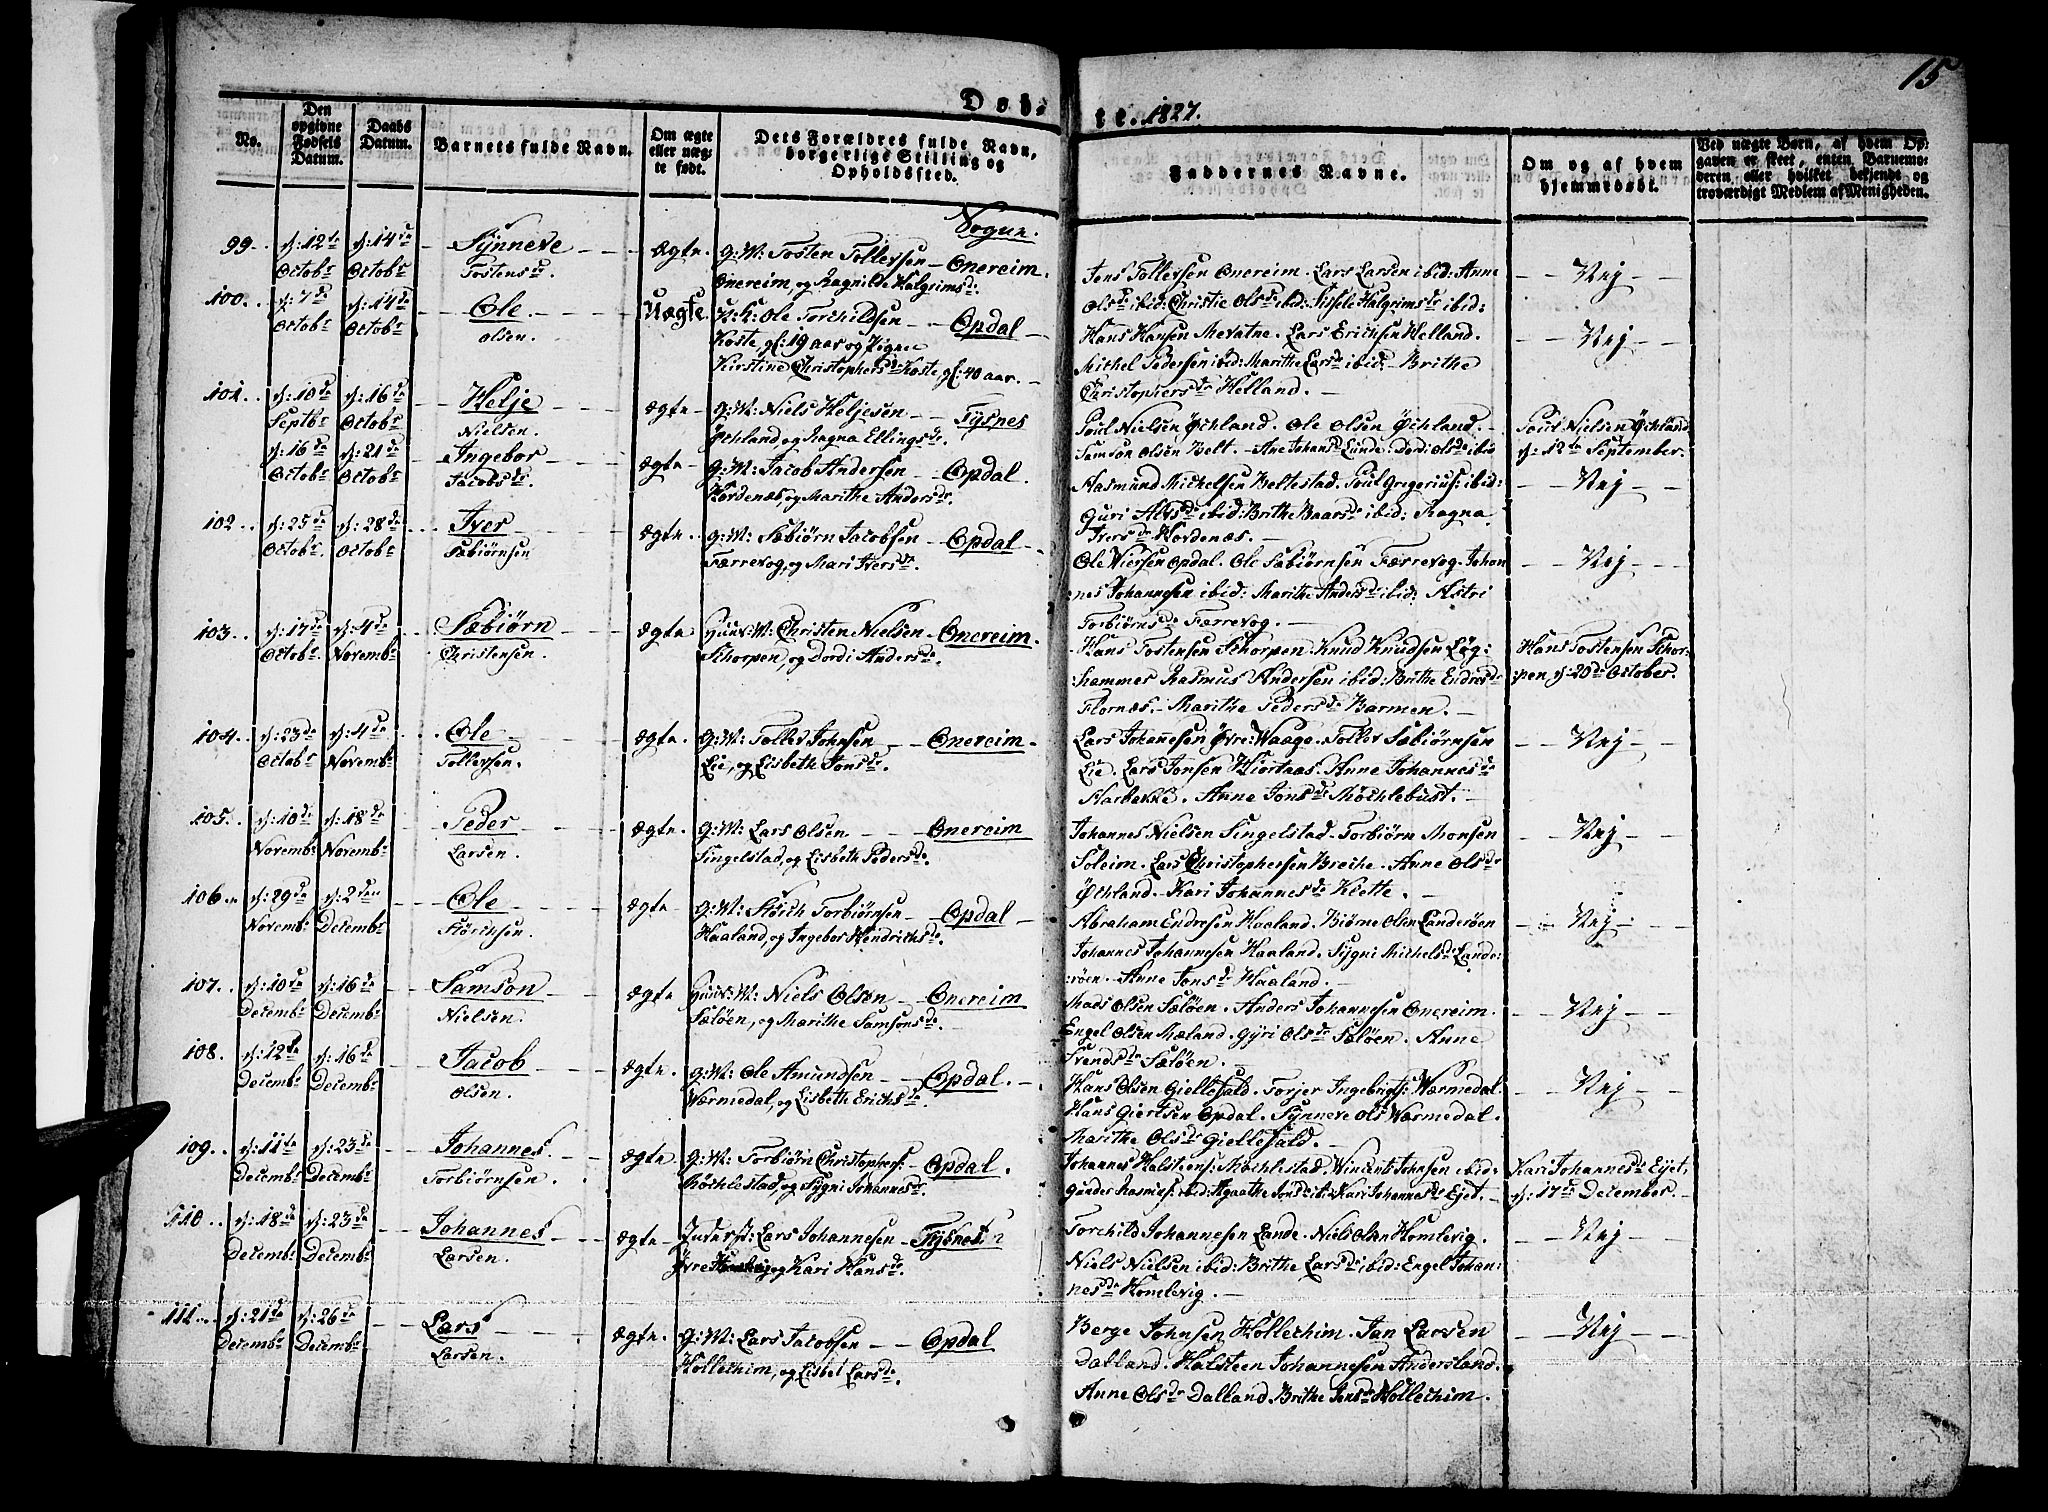 15
Døbte. 1827.
No.
Den opgivne Fødsels Datum.
Daabs Datum.
Barnets fulde Navn.
Om ægte eller uægte født.
Dets Forældres fulde Navn, borgerlige Stilling og Opholdssted.
Faddernes Navne.
Om og af hvem hjemmedøbt.
Ved uægte Børn, af hvem Opgaven er skeet, enten Barnemoderen eller hvilket bekjendt og troværdigt Medlem af Menigheden.
Sogne.
99. d: 12te Octobr d: 14de Octobr Synneve Tostensdr ægte G:M: Tosten Tollevsen Onereim, og Ragnilde Halgrimsdr: Onereim.
Jens Tollevsen Onereim. Lars Larsen ibid: Anne
Olsdr ibid: Christie Olsdr ibid: Sissele Halgrimsdr ibid:
Nej
100. d: 7de Octobr d: 14de Octobr Ole Olsen. Uægte U:K: Ole Torchildsen Koste, gl: 19 aar og Pigen Kirstine Christophersdr Koste gl: 40 aar. Opdal
Hans Hansen Mevatne. Lars Erichsen Helland.
Michel Pedersen ibid: Marithe Larsdr ibid: Brithe
Christophersdr Helland.
Nej
101. d: 10de Septbr d: 16de Octobr Helje Nielsen. ægte G:M: Niels Heljesen Øchland og Ragna Ellingsdr. Tysnes
Poul Nielsen Øchland. Ole Olsen Øchland.
Samson Olsen Belt. Ane Johansdr Lunde. Dordi Olsdr ibid
Poul Nielsen Øchland
d: 12te September.
d: 16de Octobr d: 21de Octobr Ingebor Jacobsdr. ægte G:M: Jacob Andersen Hordenæs, og Marithe Andersdr. Opdal.
Aasmund Michelsen Beltestad. Poul Gregerius: ibid:
Guri Alvsdr ibid: Brithe Baarsdr ibid: Ragna
Iversdr Hordenæs.
Nej
102. d: 25de Octobr d: 28de Octobr Iver Sæbiørnsen ægte G:M: Sæbiørn Jacobsen Færrevog, og Mari Iversdr. Opdal
Ole Wiersen Opdal. Ole Sæbiørnsen Færrevog. Johan
nes Johannesen ibid: Marithe Andersdr ibid: Astri
Torbiørnsdr Færrevog.
Nej
103. d: 17de Octobr. d: 4de Novembr Sæbiørn Christensen. ægte Huus:M: Christen Nielsen Skorpen, og Dordi Andersdr. Onereim.
Hans Tostensen Skorpen. Knud Knudsen Løg:
:hammer Rasmus Andersen ibid: Brithe Endresdr
Flornæs. Marithe Pedersdr Barmen.
Hans Tostensen Skor:
:pen d: 20de October.
104. d: 23de Octobr d: 4de Novembr Ole Tollevsen. ægte. G:M: Tollev Johnsen Lie, og Lisbeth Jonsdr. Onereim
Lars Johannesen Øvre: Waage. Tollev Sæbiørnsen
Lie. Lars Jonsen Hiortaas. Anne Johannesdr
Harbakke. Anne Jonsdr Møchlebust.
Nej
105. d: 10de Novembr d: 18de Novembr Peder Larsen. ægte. G:M: Lars Olsen Singelstad, og Lisbeth Pedersdr. Onereim
Johannes Nielsen Singelstad. Torbiørn Monsen
Soleim. Lars Christophersen Breche. Anne Olsdr
Øchland. Kari Johannesdr Klette.
Nej
106. d: 29de Novembr d: 2den Decembr Ole Størchsen. ægte G:M: Størch Torbiørnsen Haaland, og Ingebor Hendrichsdr. Opdal
Abraham Endresen Haaland. Biørne Olsen Landerøen
Johannes Johannesen Haaland. Sygni Michelsdr Lande:
:røen. Anne Jonsdr Haaland.
Nej
107. d: 10de Decembr d: 16de Decembr Samson Nielsen. ægte Huus:M: Niels Olsen Sæløen, og Marithe Samsonsdr. Onereim
Mads Olsen Sæløen. Anders Johannesen Onereim.
Engel Olsen Mæland. Gyri Olsdr Sæløen. Anne
Svendsdr Sæløen.
Nej
108. d: 12te Decembr d: 16de Decembr Jacob Olsen. ægte G:M: Ole Amundsen Wærmedal, og Lisbeth Erichsdr. Opdal.
Hans Olsen Giellefald. Torjer Ingebrigts: Wærmedal.
Hans Giertsen Opdal. Synneve Ols Wærmedal.
Marithe Olsdr Giellefald.
Nej
109. d: 11te Decembr d: 23de Decembr Johannes Torbiørnsen. ægte G:M: Torbiørn Christophers: Møchlestad, og Sygni Johannesdr. Opdal.
Johannes Halsteens: Møchlestad. Wincents Johnsen ibid:
Gunder Rasmus: ibid: Agaathe Jonsdr ibid: Kari Johannesdr Ejet.
Kari Johannesdr Ejet,
d: 17de December.
110 d: 18de Decembr d: 23de Decembr Johannes Larsen. ægte Inderst: Lars Johannesen Øvre og Kari Hansdr. Tysnes
Torchild Johannesen Lande. Niels Olsen Homlevig.
Niels Nielsen ibid: Brithe Larsdr ibid: Engel Johan:
nesdr Homlevig.
Nej
111. d: 21de Decembr d: 26de Decembr Lars Larsen. ægte. G:M: Lars Jacobsen Hollechim, og Lisbet Larsdr. Opdal
Berge Johnsen Hollechim. Jan Larsen
Dalland. Halsteen Johannesen Andersland.
Anne Olsdr Dalland. Brithe Jonsdr Hollechim.
Nej